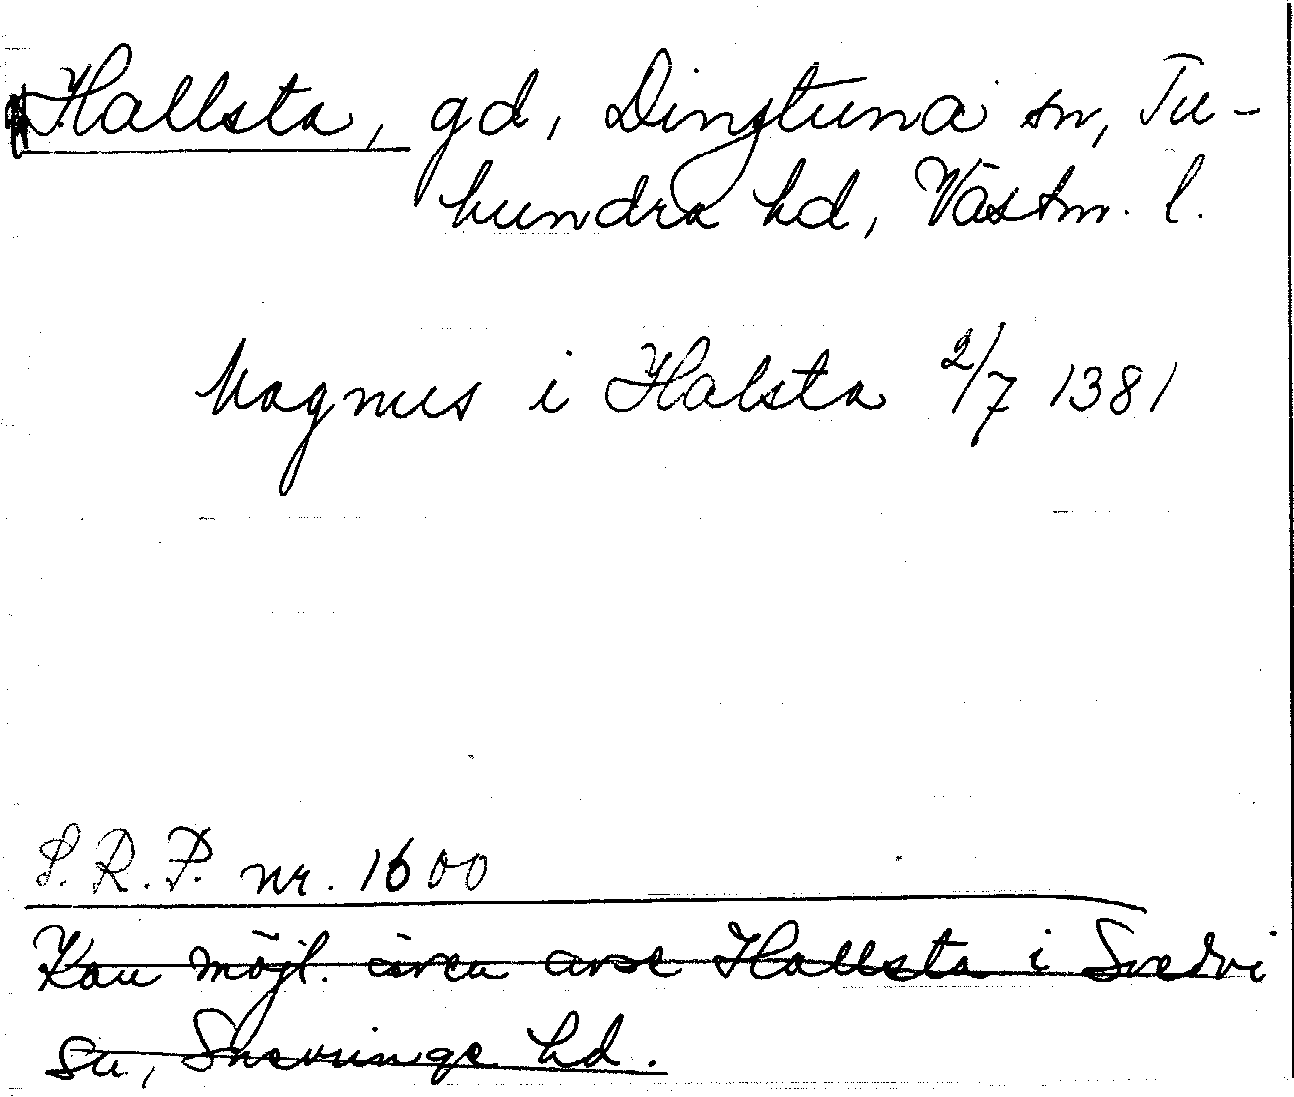 Hallsta, gd, Dingtuna sn, Tu-
hundra hd, Västm. l.
Magnus i Halsta 2/7 1381
S.R.P. nr. 1600
Kan möjl. även avse Hallsta i Svedvi
sn, Snevringe hd.